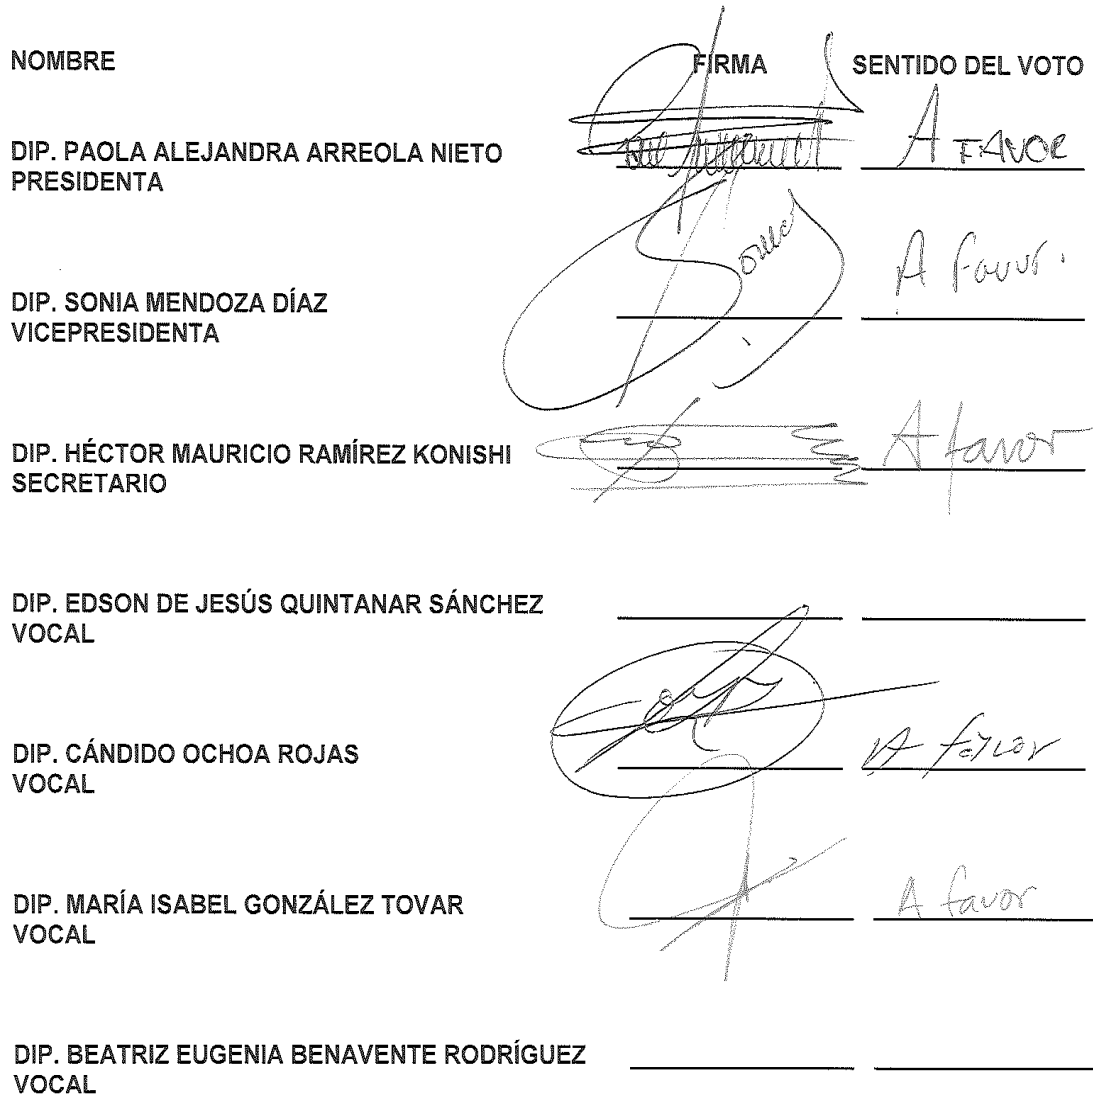 NOMBRE FIRMA SENTIDO DEL VOTO
DIP. PAOLA ALEJANDRA ARREOLA NIETO A FAVOR
PRESIDENTA
Sonia A favor.
DIP. SONIA MENDOZA DÍAZ
VICEPRESIDENTA
DIP. HÉCTOR MAURICIO RAMÍREZ KONISHI A favor
SECRETARIO
DIP. EDSON DE JESÚS QUINTANAR SÁNCHEZ
VOCAL
DIP. CÁNDIDO OCHOA ROJAS A favor
VOCAL
DIP. MARÍA ISABEL GONZÁLEZ TOVAR A favor
VOCAL
DIP. BEATRIZ EUGENIA BENAVENTE RODRÍGUEZ
VOCAL